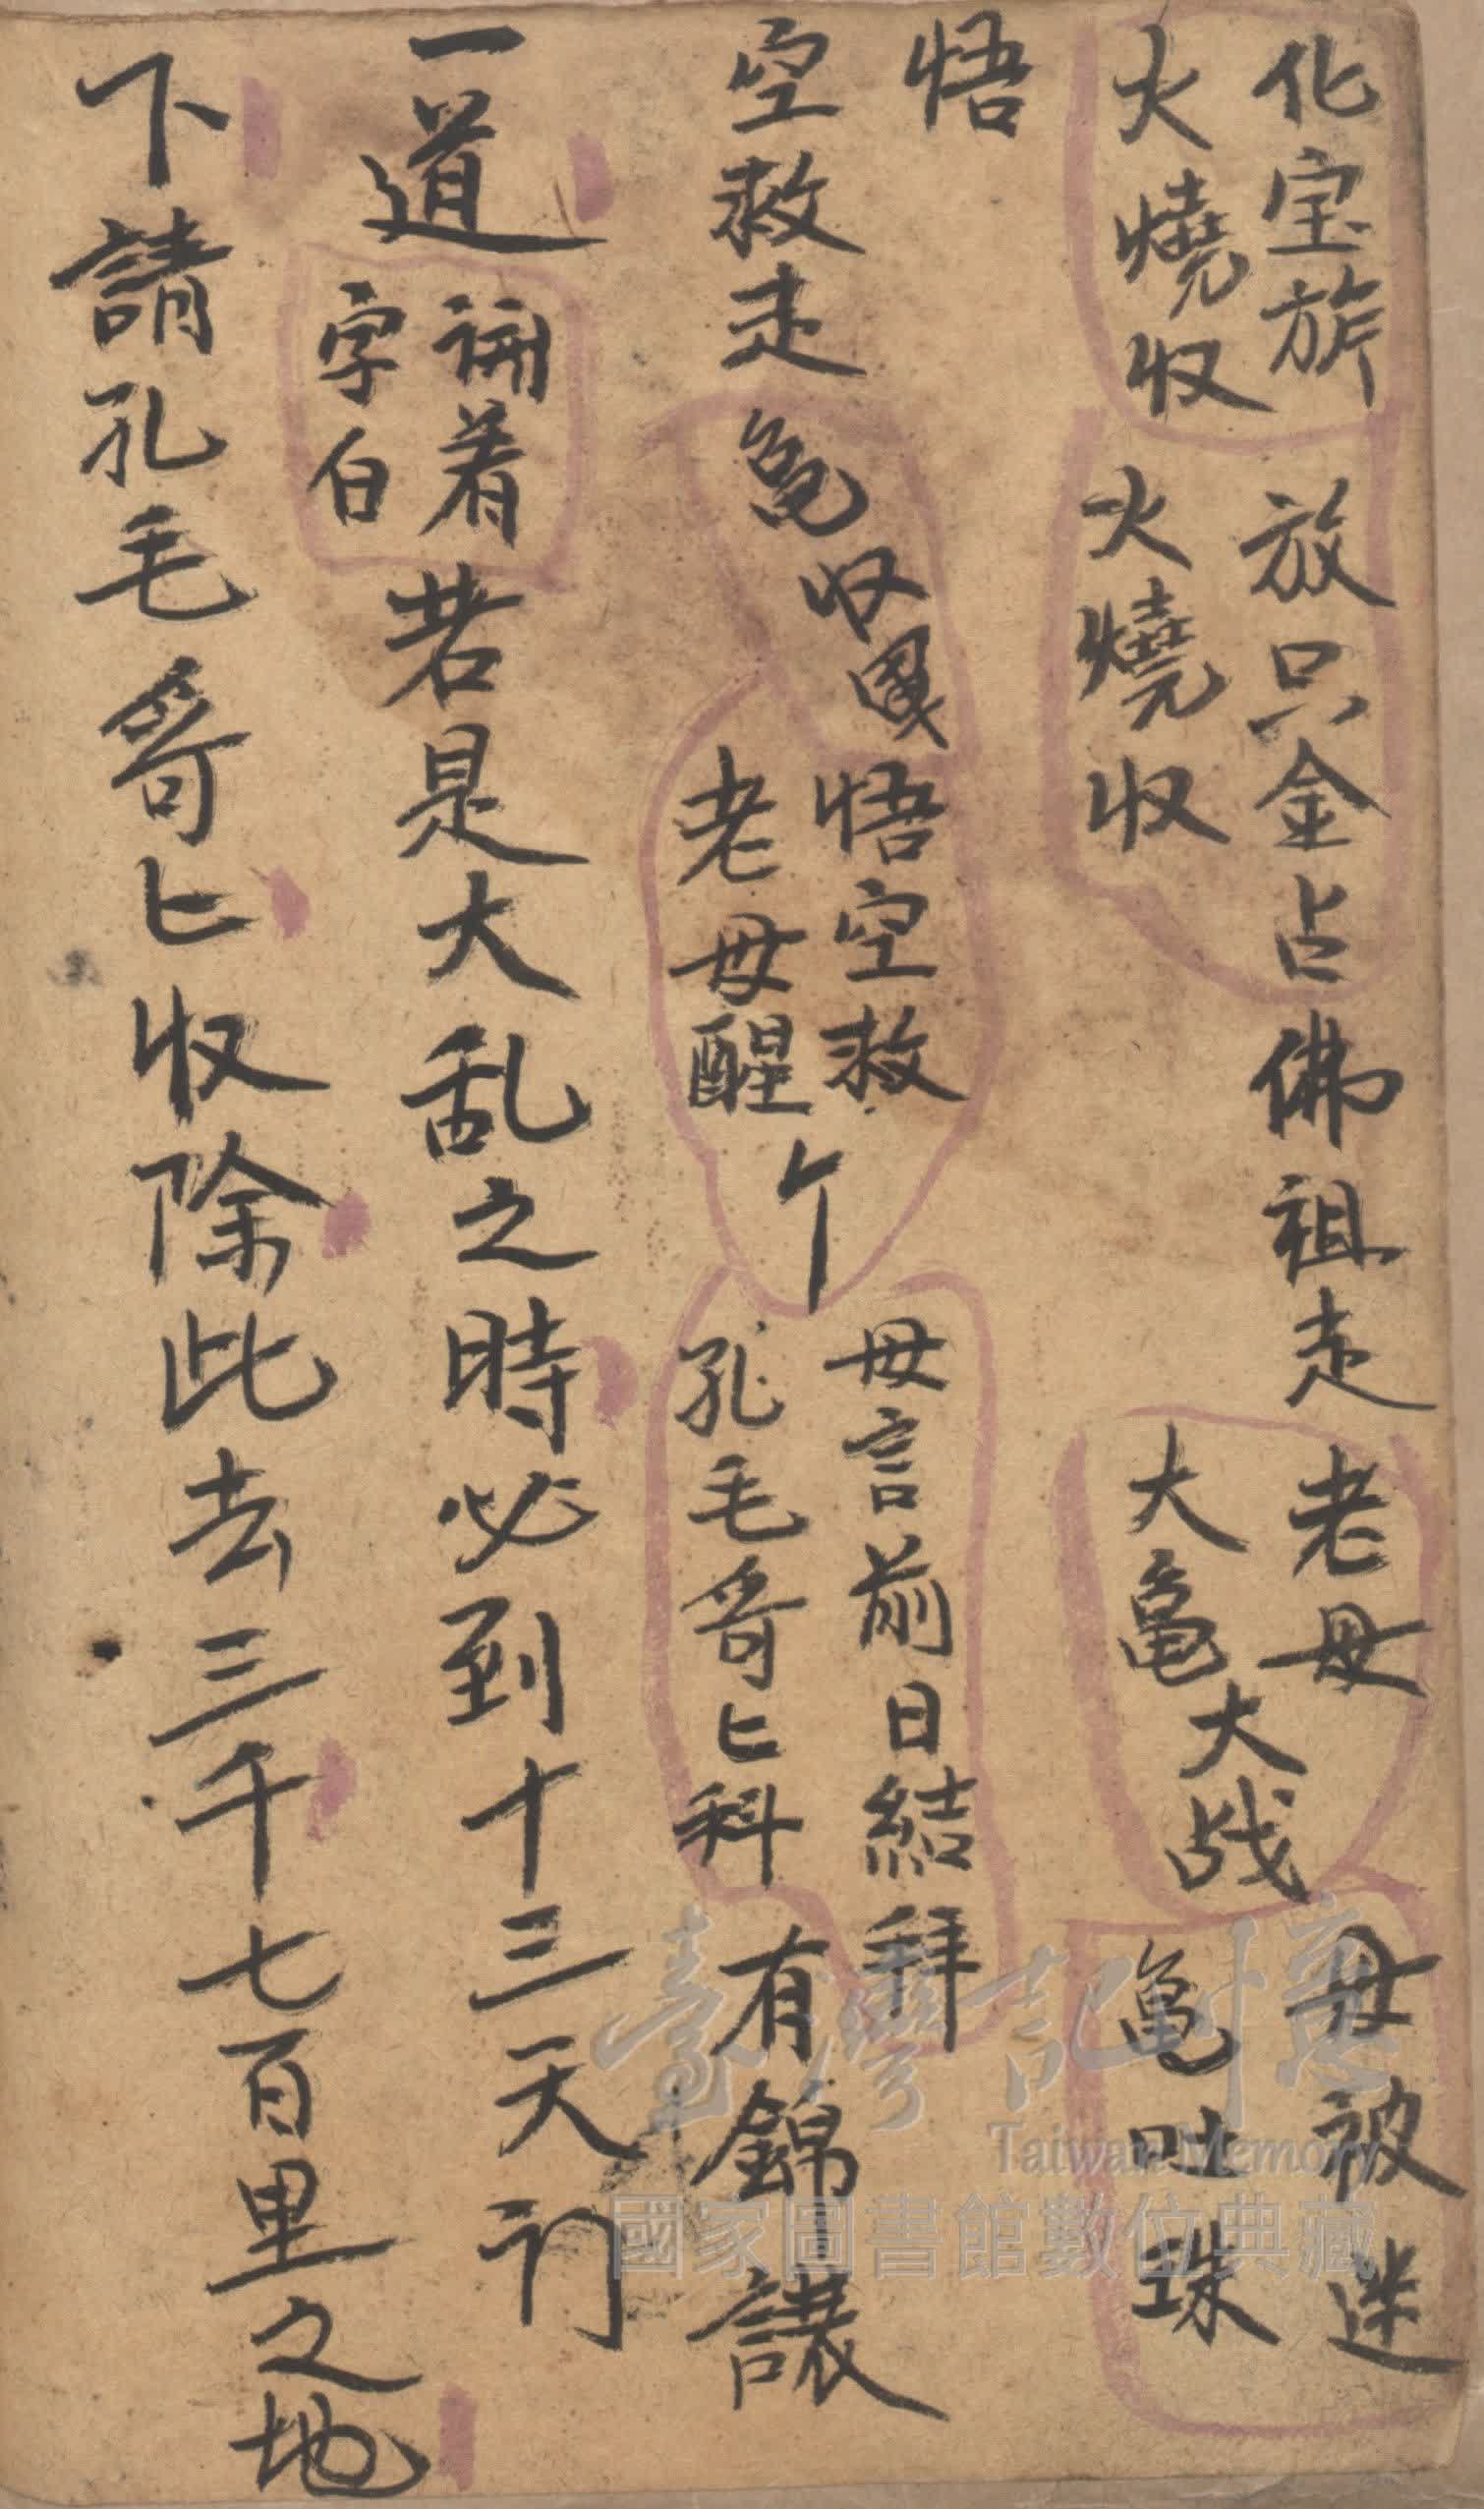 化宝旂
火燒収
放只金占
火燒収
佛祖走
老母
大亀大战
母被迷
亀吐珠
悟
空救走
亀収
悟空救
老母醒
母言前日結拜
孔毛哥匕科
有錦讓
一道
着
字白
若是大乱之時必到十三天门
下請孔毛哥匕収除此去三千七百里之地
臺灣記憶
Taiwan Memory
國家圖書館數位典藏